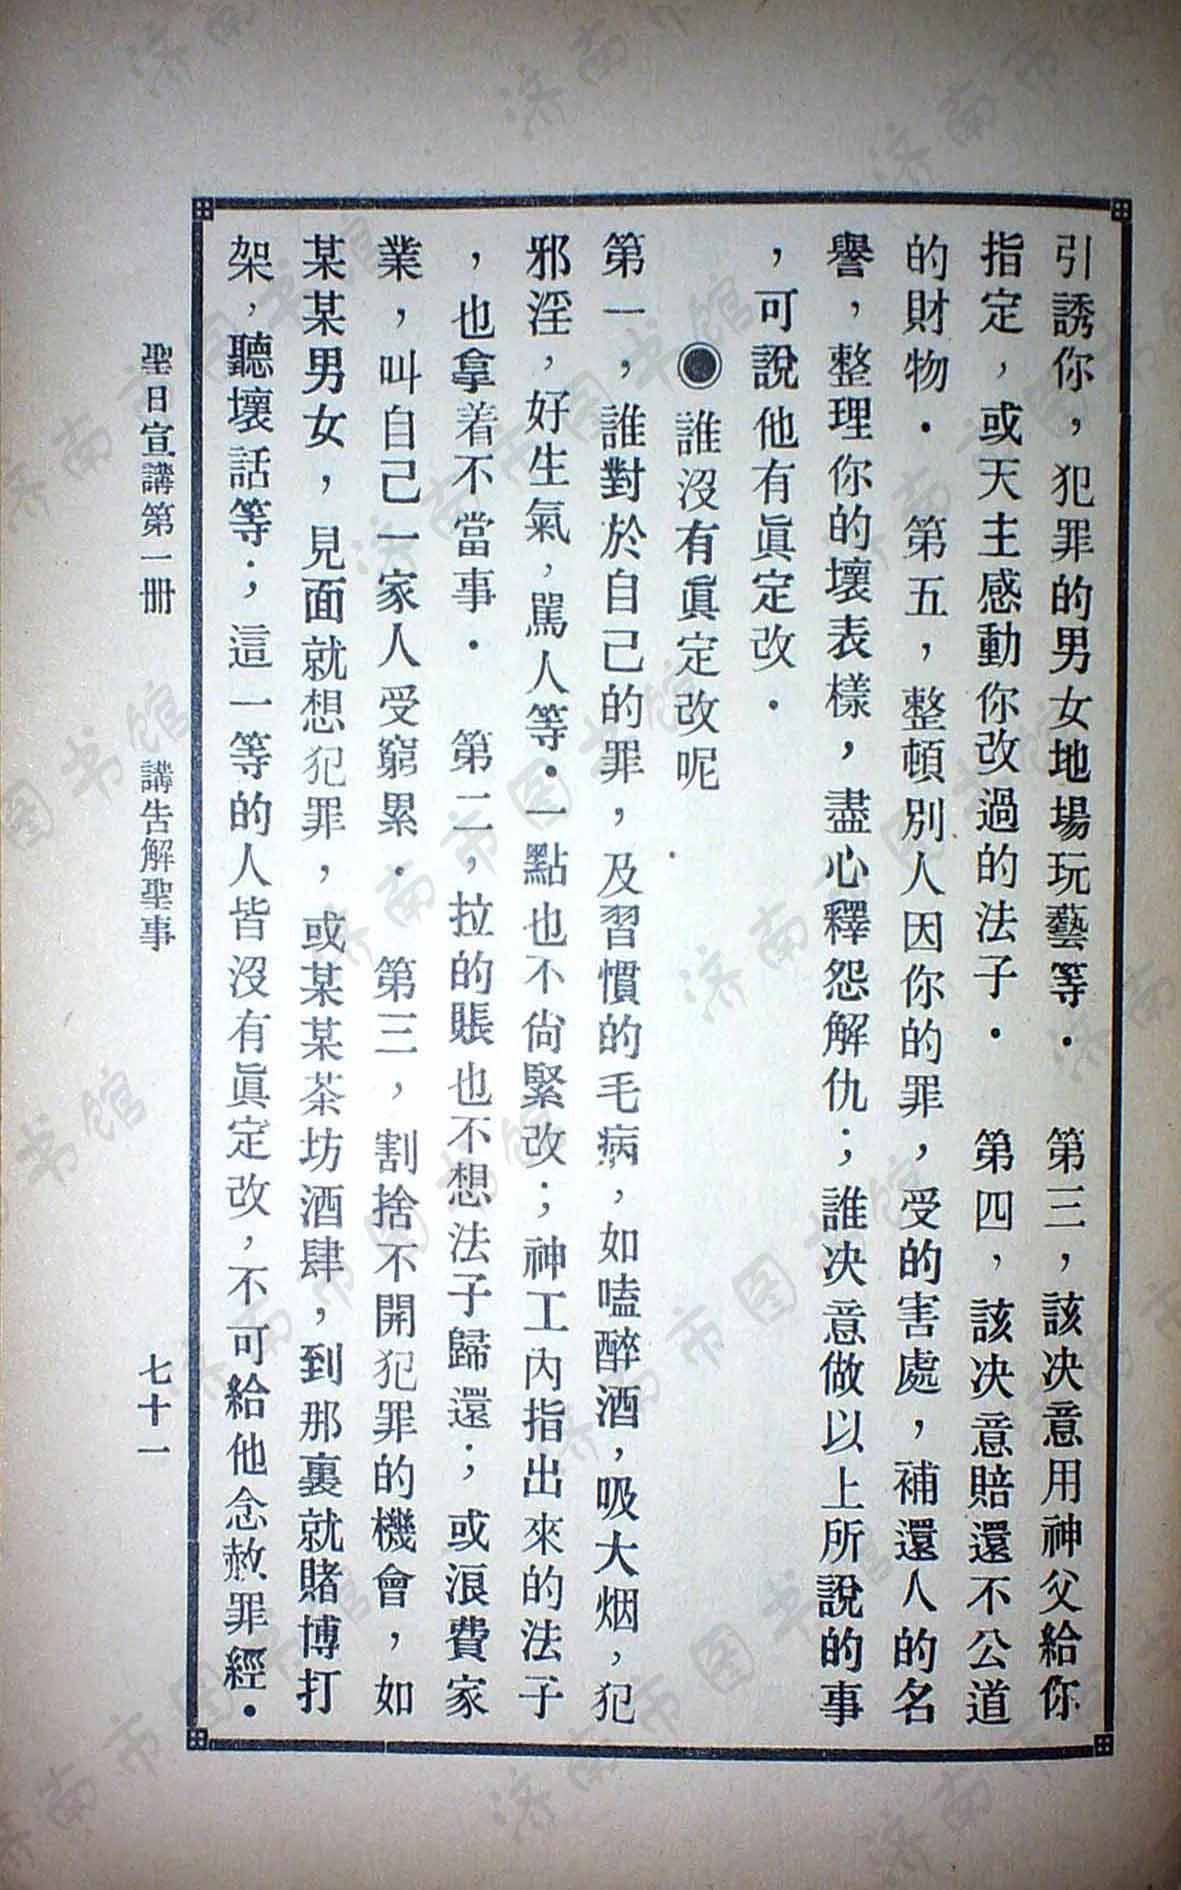 引誘你，犯罪的男女地場玩藝等．　第三，該決意用神父給你
指定，或天主感動你改過的法子．　第四，該決意賠還不公道
的財物．　第五，整頓別人因你的罪，受的害處，補還人的名
譽，整理你的壞表樣，盡心釋怨解仇；誰決意做以上所說的事
，可說他有眞定改．
◉誰沒有眞定改呢
第一，誰對於自己的罪，及習慣的毛病，如嗑醉酒，吸大烟，犯
邪淫，好生氣，駡人等．一點也不尙緊改；神工內指出來的法子
，也拿着不當事．　第二，拉的賬也不想法子歸還；或浪費家
業，叫自己一家人受窮累．　第三，割捨不開犯罪的機會，如
某某男女，見面就想犯罪，或某某茶坊酒肆，到那裏就賭博打
架，聽壞話等；這一等的人皆沒有眞定改，不可給他念赦罪經．
聖日宣講第一册　講告解聖事　七十一
济南市图书馆